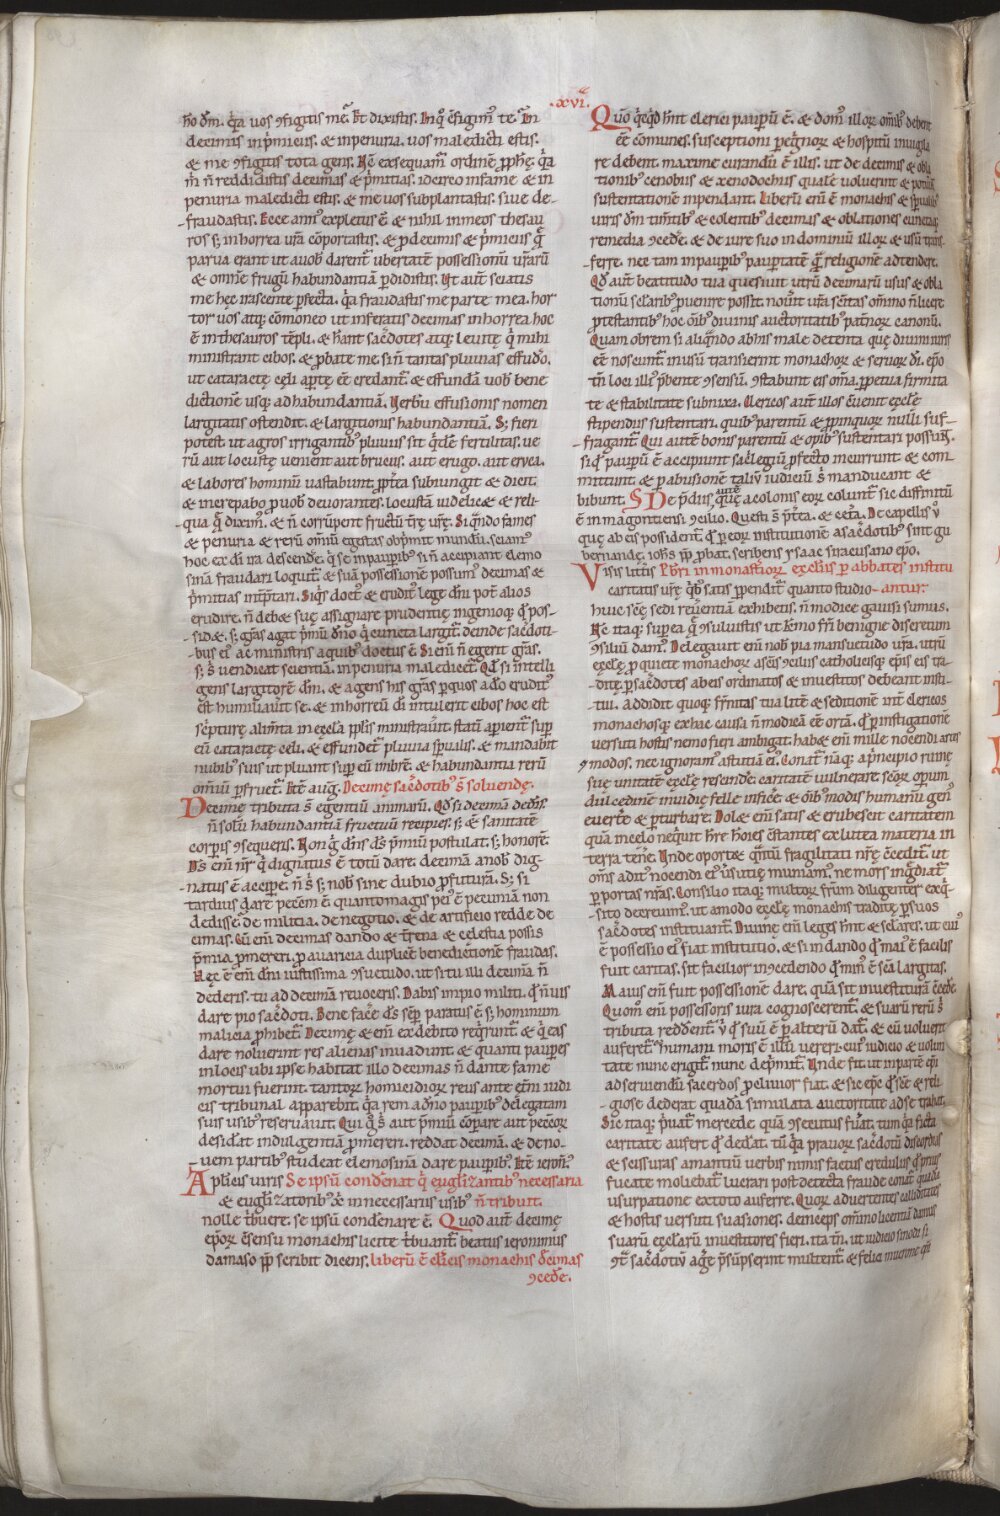 hō dm̄. q̇a uos ɔfigitis me. Et dixistis. In q̊ ɔfigim᷒ te. In
decimis in p̍miciis. & in penuria. uos maledicti estis.
& me ɔfigitis tota gens. Nē exsequam̄ ordinē p̱phę. q̇a
m̄ n̄ reddidistis decimas & p̍mitias. idcirco in fame & in
penuria maledicti estis. & me uos subplantastis. siue de-
fraudastis. Ecce ann᷒ expletus ē & nihil in meos thesau
ros s; in horrea ur̄a cōportastis. & p̱ decimis & p̍miciis q̄
parua erant ut a uob̄ darent᷑ ubertatē possessionū ur̄arū
& omnē frugū habundantiā p̱didistis. Ut aut̄ sciatis
me hęc irascente p̱fecta. q̇a fraudastis me parte mea. hor
tor uos atq; cōmoneo ut inferatis decimas in horrea hoc
ē in thesauros tēpli. & hant sac̄dotes atq; leuitę q̍ mihi
ministrant cibos. & p̱bate me si n̄ tantas pluuias effudo.
ut cataractę cęli ap̱tę ēē credant᷑. & effundā uob̄ bene
dictionē usq; ad habundantiā. Uerbū effusionis nomen
largitatis ostendit. & largitionis habundantiā. S; fieri
potest ut agros irrigantib᷒ pluuiis sit q̍dē fertilitas. ue
rū aut locustę uenient aut brucus. aut erugo. aut eruca.
& labores hominū uastabunt. p̱pt̄a subiungit & dicit.
& increpabo p̱ uob̄ deuorantes. locustā uidelic& & reli-
qua q̄ dixim᷒. & n̄ corrūpent fructū tr̄ę ur̄ę. Siq̍ndo fames
& penuria & rerū om̄iū egestas obp̍mit mundū. sciam᷒
hoc ex di̅ ira descend̄e. q̍ se in paup̱ib᷒ si n̄ accipiant elemo
sinā fraudari loquit̄ & suā possessionē possum᷒ decimas &
p̍mitias int̄p̱tari. Siq̍s doct᷒ & erudit᷒ lege dn̄i pot̄ alios
erudire. n̄ deb& suę assignare prudentię ingenioq; q̍ pos-
sid&. s; gr̄as agat p̍mū dn̄o q̍ cuncta largit̄. deinde sac̄doti-
bus ei᷒ ac ministris a quib᷒ doctus ē. Si eni̅ n̄ egerit gr̄as.
s; s̄ uendicat scientiā. in penuria maledicet̄. Qd̄ si intelli
gens largitorē dn̄i. & agens his gr̄as p̱ quos a d̄o erudit᷒
est humiliauit se. & in horreū di̅ intulerit cibos hoc est
sc̍pturę alim̄ta in ecl̄a p̱plis ministrau̍it. statī ap̱ient᷑ sup̱
eū cataractę cęli. & effundet̄ pluuia sp̍ualis. & mandabit
nubib᷒ suis ut pluant sup̱ eū imbrē. & habundantia rerū
om̄iū p̱fruet̄. Itē aug̅. Decimę sac̄dotib᷒ s̄ soluendę.
Decimę tributa s̄ egentiū animarū. Qd̄ si decimā ded̍is.
n̄ solū habundantiā fructuū recipies. s; & sanitatē
corp̱is ɔsequeris. Non g̊ dn̄s d̄s p̍miū postulat. s; honorē.
D̄s eni̅ nr̄ q̍ dignatus ē totū dare. decimā a nob̄ dig-
natus ē accip̱e. n̄ s̄ s; nob̄ sine dubio p̱futurā. S; si
tardius dare pecc̄m ē quantomagis pei᷒ ē pecuniā non
dedisse. de milicia. de negotio. & de artificio redde de
cimas. Cū eni̅ decimas dando & tr̄ena & celestia possis
p̍mia p̱mereri. p̱ auaricia duplicē benedictionē fraudas.
Nęc ē eni̅ dn̄i iustissima ɔsuetudo. ut si tu illi decimā n̄
dederis. tu ad decimā reuoceris. Dabis impio militi. q̍ n̄ uis
dare pio sac̄doti. Bene fac̄e d̄s sēp̱ paratus ē s; hominum
malicia p̱hibet̄. Decimę & eni̅ ex debito req̍runt᷑. & q̍ eas
dare noluerint res alienas inuadunt. & quanti paup̱es
in locis ubi ipse habitat illo decimas n̄ dante fame
mortui fuerint. tantor̄ homicidior̄ reus ante et̄ni iudi
cis tribunal apparebit. q̇a rem a dn̄o paup̱ib᷒ delegatam
suis usib᷒ reseruauit. Qui g̊ s̄ aut p̍miū cōparare aut pecc̄or
desid̄at indulgentiā p̱mereri. reddat decimā. & de no-
uem partib᷒ studeat elemosinā dare paup̱ib᷒. Itē ieron᷒.
Aplicis uiris Se ipsū condēnat q̍ euglizantib᷒ necessaria
& euglizatorib᷒ x̄ in necessariis usib᷒ n̄ tribuit.
nolle t̍buere. se ipsū condēnare ē. Quod aut̄ decimę
ep̄or ɔsensu monachis licite t̍buant̄. beatus ieronimus
damaso p̱p̱ scribit dicens. liberū ē cl̄icis monachis decimas
ɔced̄e.
.xvi.
Quō q̍cq̍d hn̄t clerici paup̱ū ē. & dom᷒ illor̄ om̄ib᷒ debent
ēē cōmunes. susceptioni p̱egr̄nor̄ & hospitū inuigila
re debent. maxime curandū ē illis. ut de decimis & obla
tionib᷒ cenobiis & xenodochiis qualē uoluerint & potu̍int
sustentationē inpendant. Liberū eni̅ ē monachis & sp̍ualib᷒
uiris dm̄ tim̄tib᷒ & colentib᷒ decimas & oblationes cunctaq;
remedia ɔced̄e. & de iure suo in dominiū illor̄ & usū trans-
ferre. nec tam in paup̱ib᷒ paup̱tatē q̄ religionē adtendere.
Qd̄ aut̄ beatitudo tua quesiuit utrū decimarū usus & obla
tionū sclārib᷒ p̱uenire possīt. nou̍it ur̄a sc̄itas omīno n̄ licere
p̱testantib᷒ hoc ōib᷒ diuinis auctoritatib᷒ patr̄nor̄ canonū.
Quam obrem si aliq̍ndo ab his male detenta quę diuini iuris
ēē noscunt̄. in usū transierint monachor̄ & seruor̄ di̅. ep̄o
tn̄ loci illi᷒ p̍bente ɔsensū. ɔstabunt eis om̄ia. p̱petua firmita
te & stabilitate subnixa. Clericos aut̄ illos ɔuenit ecl̄ę
stipendiis sustentari. quib᷒ parentū & p̱pinquor̄ nulla suf-
fragant᷑. Qui autē bonis parentū & opib᷒ sustentari possunt.
si q̍d paup̱ū ē accipiunt sac̍legiū p̱fecto incurrunt & com
mittunt. & p̱ abusionē taliū iudiciū s̄ manducant &
bibunt. SDe p̍diis quę aut̄ a colonis eor̄ coluntr̄ sic diffinitū
ē in magontiensi ɔcilio. Questi s̄ p̍t̄ea. & cet̄a. De capellis ū
quę ab eis possident᷑. q̍ p̱ eor̄ institutionē a sac̄dotib᷒ sint gu
bernandę. ioh̄s p̱p̱ p̱bat. scribens ysaac siracusano ep̄o.
Visis litt̄is Pb̄ri in monast̄ior̄ ecl̄esiis p̱ abbates institu
caritatis ur̄ę q̍b᷒ satis p̱pendit̄ quanto studio -antur.
huic sc̄ę sedi reu̍entiā exhibetis. n̄ modice gauisi sumus.
Nē itaq; sup̱ ea q̄ ɔsuluistis ut km̄o fr̄i benigne discretum
ɔsiliū dam᷒. Delegauit eni̅ nob̄ pia mansuetudo ur̄a. utrū
ecl̄ę p̱ quiete monachor̄ asens ɔciliis catholicisq; ep̄is eis tra-
ditę p̱ sac̄dotes ab eis ordinatos & inuestitos debeant insti-
tui. Addidit quoq; fr̄nitas tua litē & seditionē int̄ clericos
monachosq; ex hac causa n̄ modicā ēē ortā. q̍ p̱ instigationē
uersuti hostis nemo fieri ambigat. hab& eni̅ mille nocendi artes
ɔ modos. nec ignoram᷒ astutiā ei᷒. Conat᷑ nāq; a p̍ncipio ruinę
suę unitatē ecl̄ę rescend̄e. caritatē uulnerare. sc̄or̄ opum
dulcedinē inuidię felle infic̄e. & ōib᷒ modis humanū gen᷒
euert̄e & p̱turbare. Dol& eni̅ satis & erubescit caritatem
quā in celo neq̍uit h̄re hoi̅es ɔstantes ex lutea materia in
terra ten̄e. Unde oport& q̍ntū fragilitati nr̄ę ɔcedit᷑. ut
om̄s adit᷒ nocendi ei᷒ u̍sutię muniam᷒. ne mors ing̍diat᷑
p̱ portas nr̄as. Consilio itaq; multor̄ fr̄um diligenter exq̍-
sito decreuim᷒. ut amodo ecl̄ę monachis traditę p̱ suos
sac̄dotes instituant᷑. Diuinę eni̅ leges hn̄t & sclāres. ut cui᷒
ē possessio ei᷒ fiat institutio. & si in dando q̍ mai᷒ ē facilis
fuit caritas. sit facilior in ɔcedendo q̍ min᷒ ē sc̄a largitas.
Maius eni̅ fuit possessionē dare. quā sit inuestiturā ɔced̄e.
Quom᷒ eni̅ possessoris iura cognoscerent᷑. & suarū rerū s̄
tributa reddent᷑. ū q̍ suū ē p̱ alterū dat᷑. & cū uoluerit
auferet᷑. humani moris ē illū uereri. cui᷒ iudicio & uolun
tate nunc erigit᷑. nunc dep̍mit᷑. Unde fit. ut in parte ep̄i
ad seruiendū sacerdos p̱cliuior fiat. & sic ep̄c q̍ sc̄ę & reli
giose dederat quadā simulata auctoritate ad se trahat.
Sic itaq; p̍uat᷑ mercede quā ɔsecutus fu̍at. tum q̇a ficta
caritate aufert q̍ ded̍at. tū q̇a prauor̄ sac̄dotū discordias
& scissuras amantiū uerbis nimis factus credulus q̍ prius
fucate moliebat᷑ lucrari post detecta fraude conat᷑ quadā
usurpatione ex toto auferre. Quor̄ aduertentes calliditates
& hostis uersuti suasiones. deinceps om̄imo licentiā damus
suarū ecl̄arū inuestitores fieri. ita tn̄. ut iudicio sinodi si
ɔt̄ sac̄dotiū ag̍e p̍sūpserint mulctent᷑. & felici munime q̍